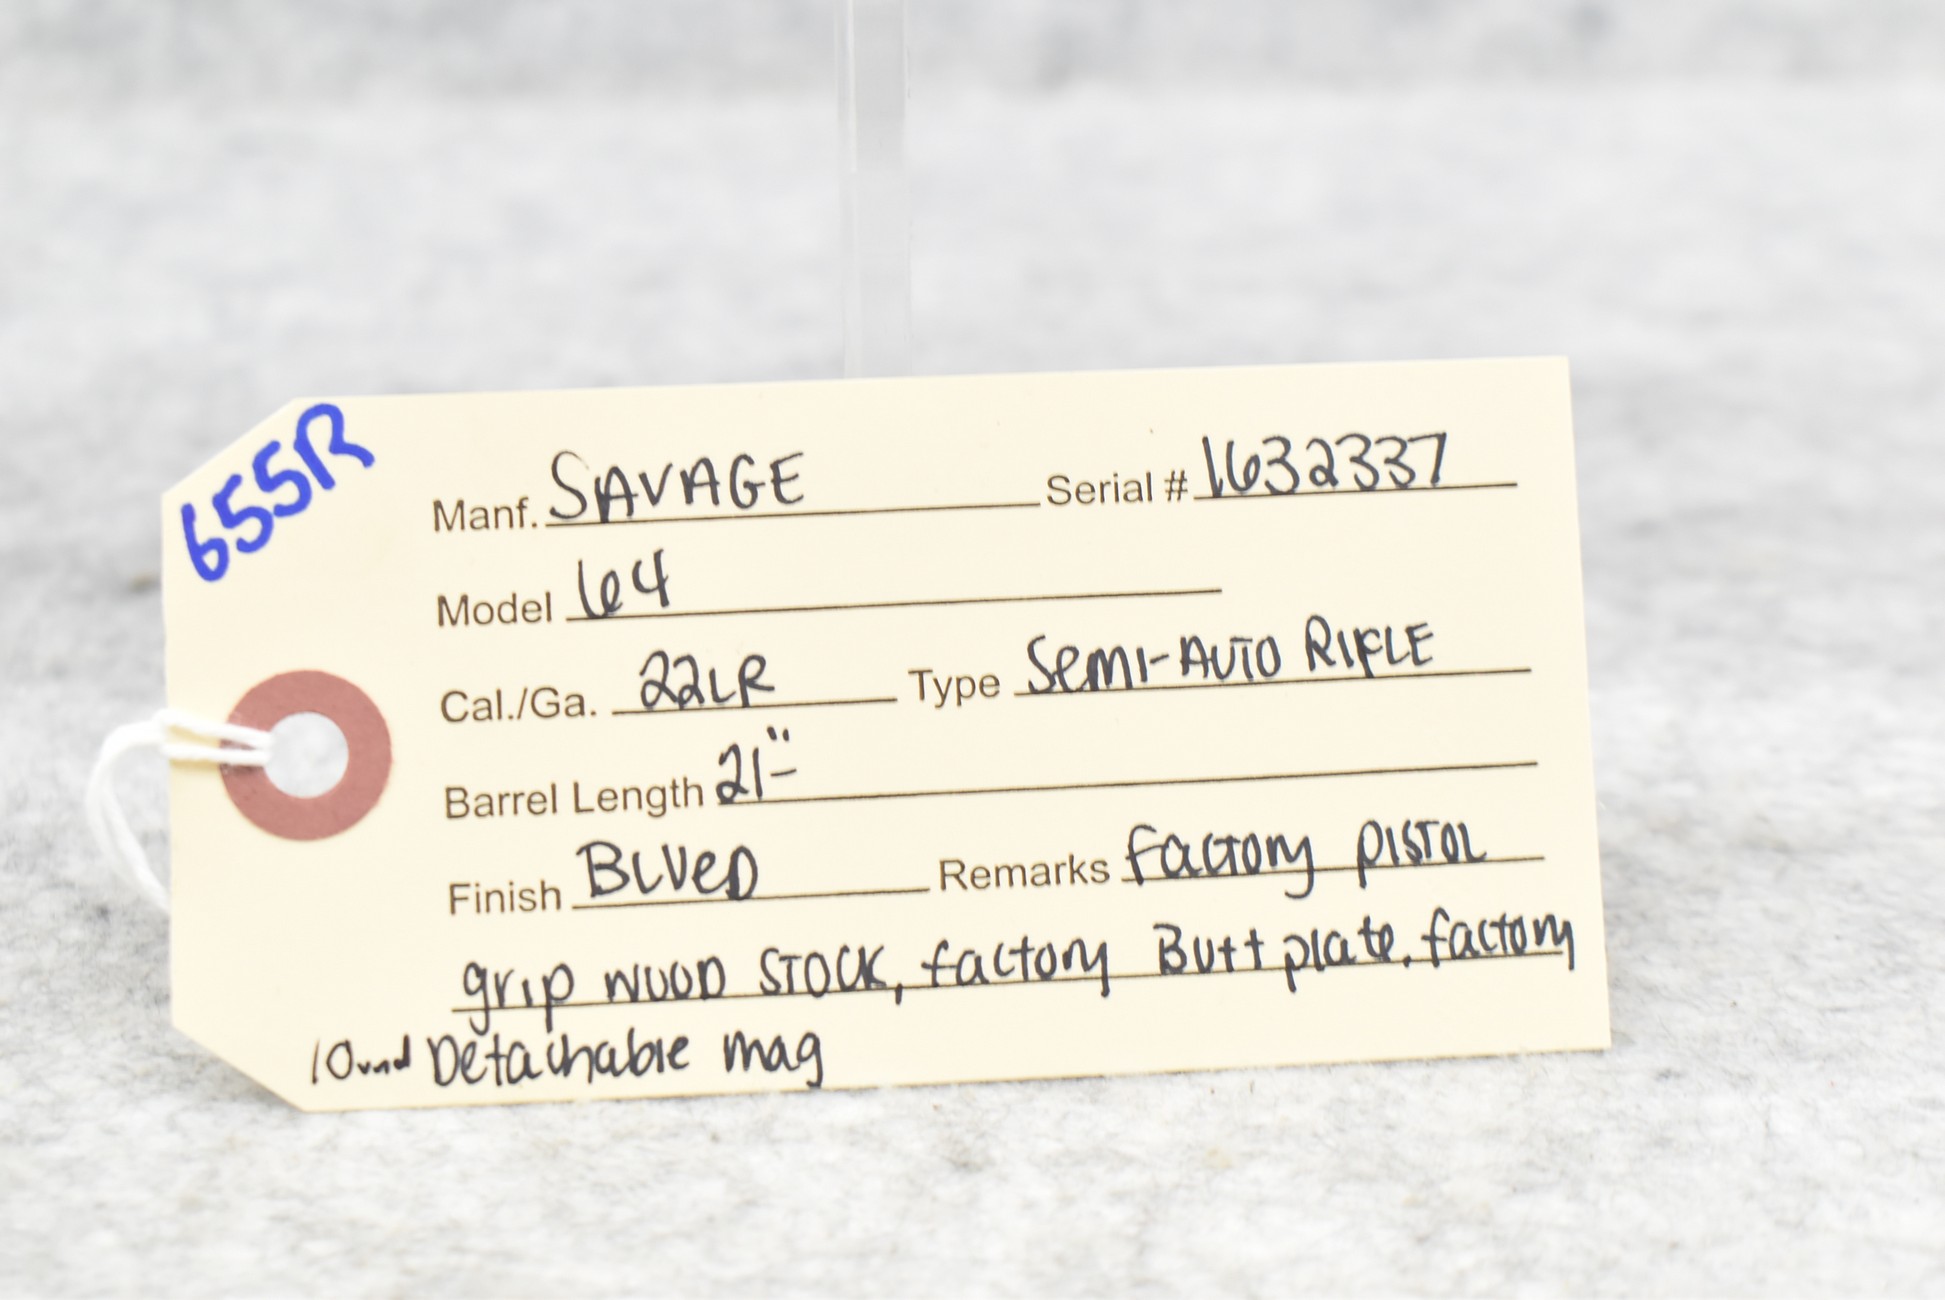 655R
Manf. SAVAGE Serial # 1632337
Model 64
Cal./Ga. 22LR Type Semi-Auto Rifle
Barrel Length 21"
Finish BLUED Remarks factory pistol
grip wood stock, factory Butt plate, factory
10und Detachable mag